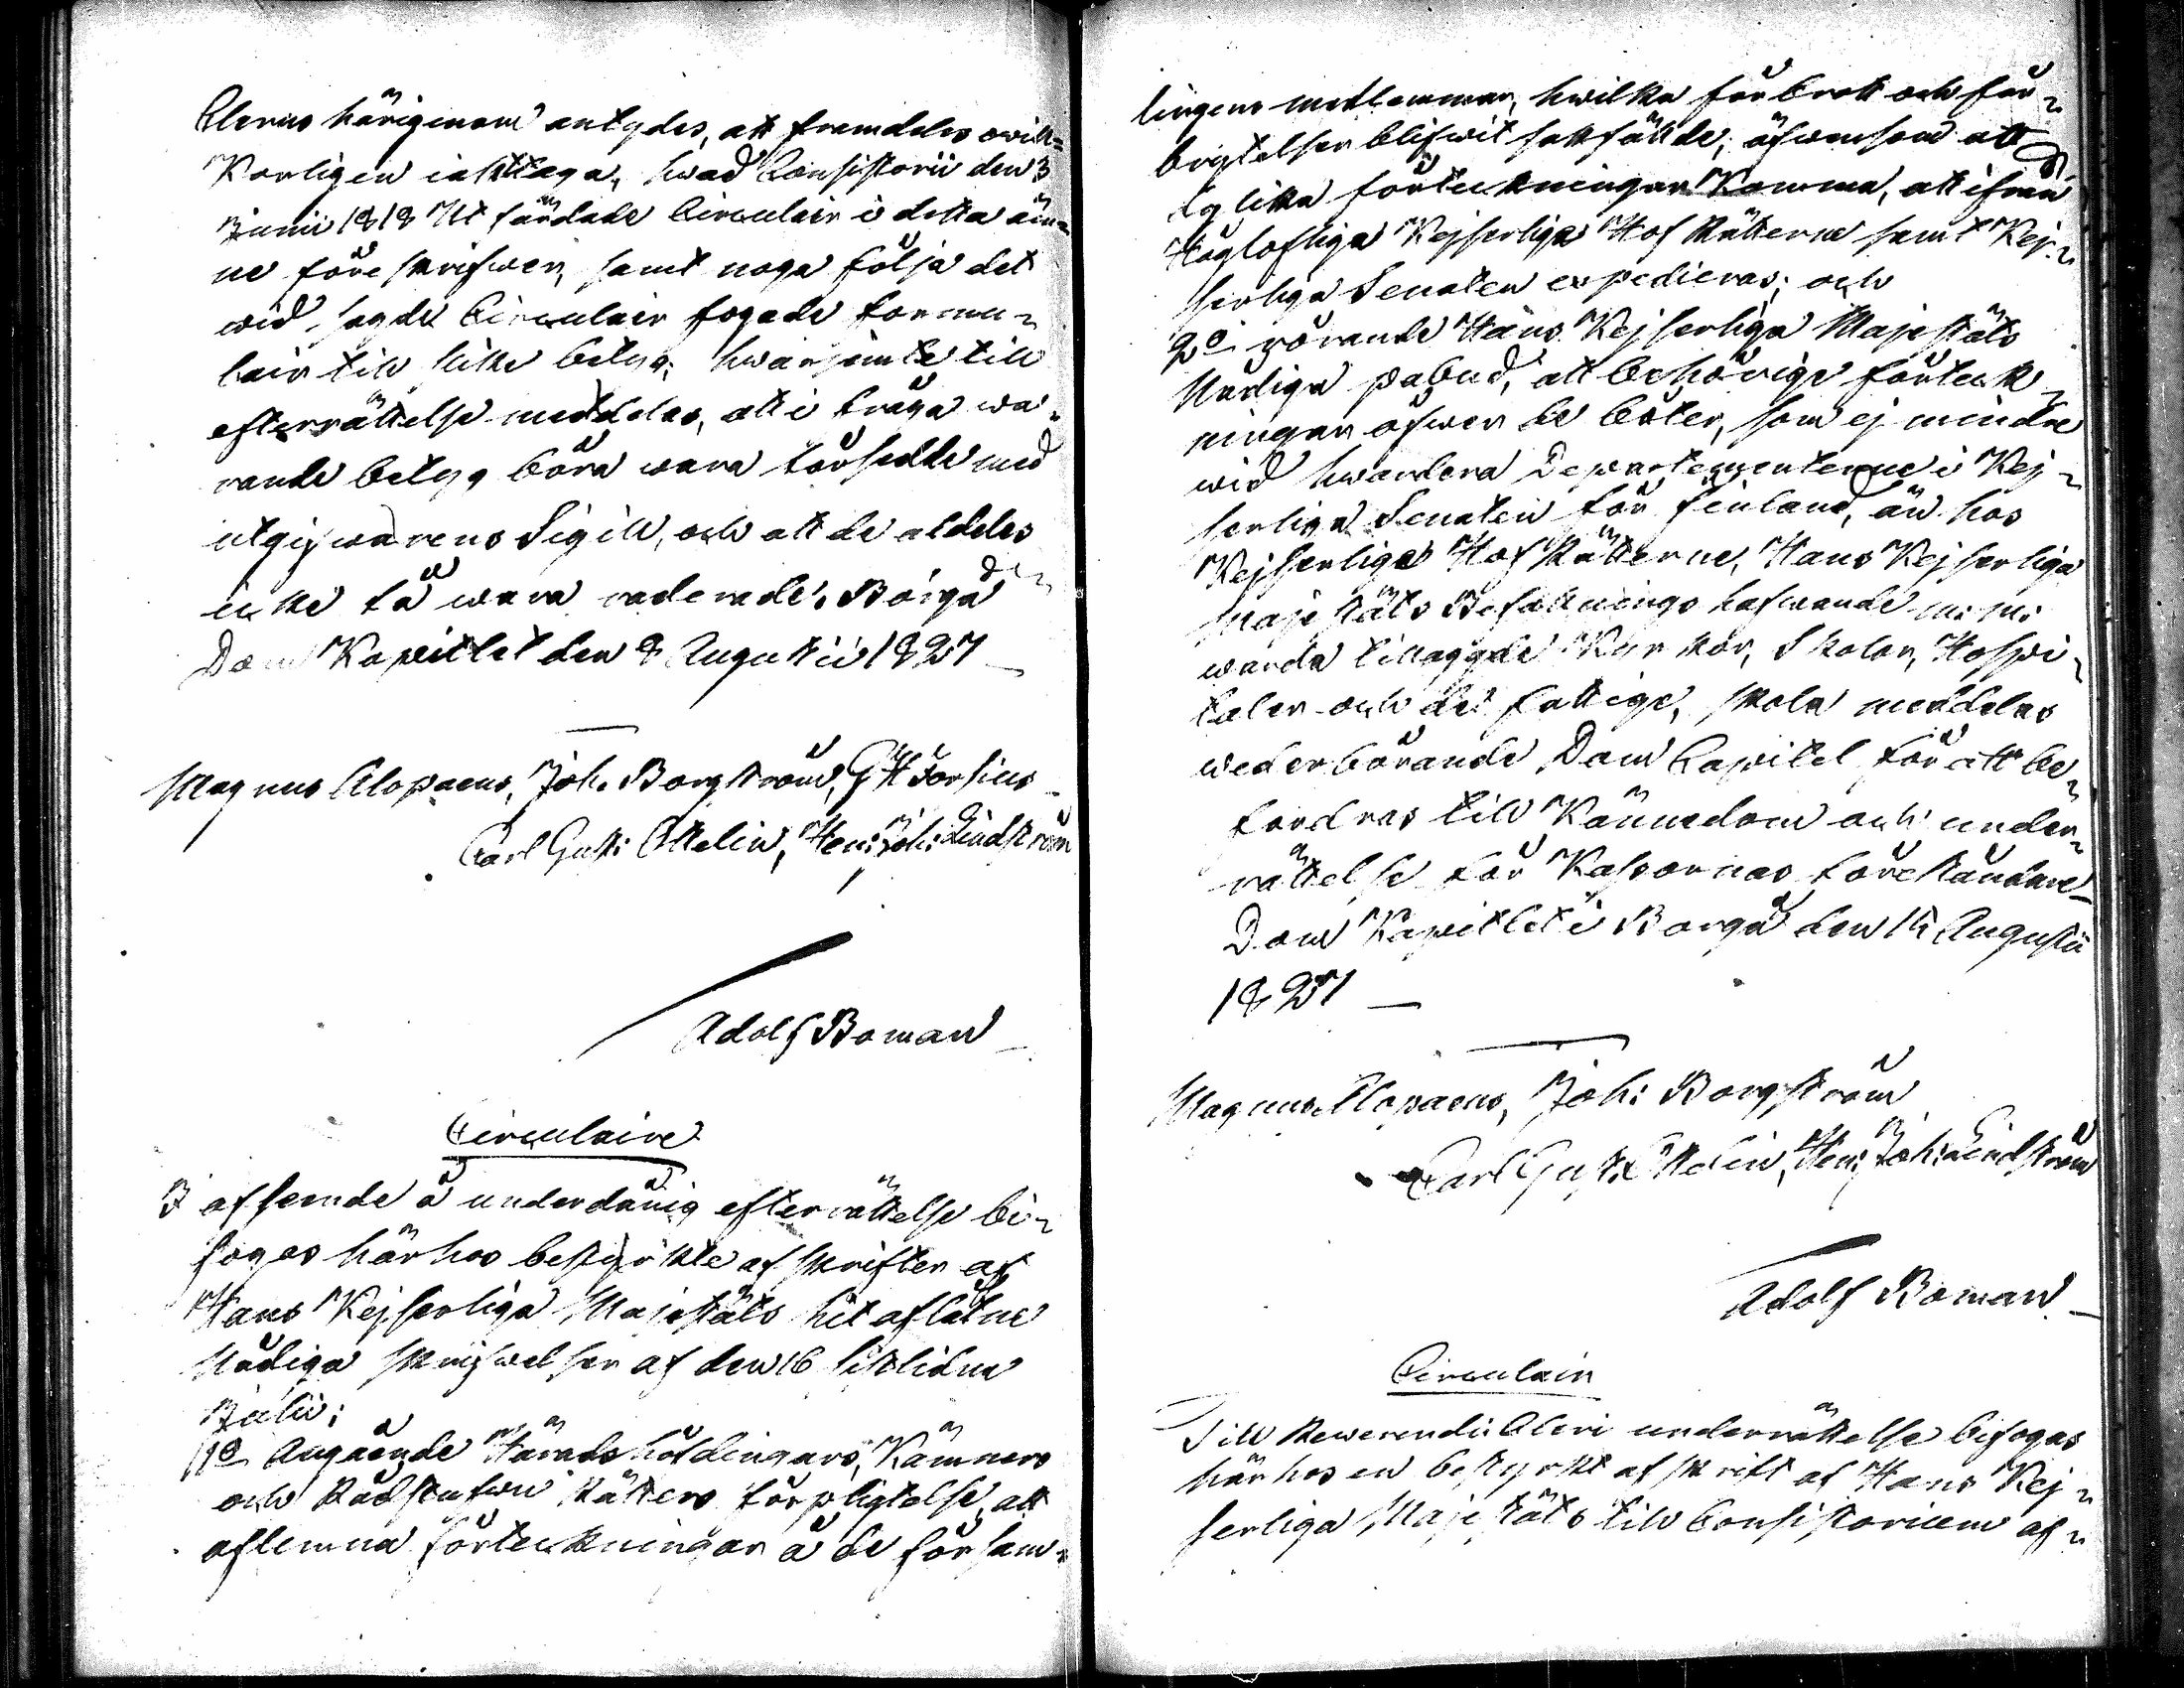 Clerus härigenom antydes, att framdeles owill=
Korligen iakttaga, hwad Consistorii den 3
Junii 1818 Utfärdade Circulair i detta äm=
ne föreskrifwer, samt noga följa det
wid sagde Circulair fogade formu=
lair till slike betyg; hwarjemte till
efterrättelse meddelas, att i fråga wa=
rande betyg böra wara försedde med
utgifwarens Sigill, och att de aldeles
icke få wara raderade. Borgå
Dom Kapitlet den 8 Augusti 1827
Magnus Alopaeus, Joh. Borgström, G H Forsius
Carl Gust: Ottelin, Hen: Joh: Lindström
Adolf Boman
Circulaire
I afseende å underdånig efterrättelse bi=
fogas härhos bestyrkte afskrifter af
Hans Kejserliga Majestäts hit aflåtne
Nådiga skrifwelser af den 16 sistlidne
Julii;
1o Angående Häradshöfdingars, Kämners
och Rådstufwu Rätters förpligtelse att
aflemna förteckningar å de försam=
lingens medlemmar, hwilka för brott och för=
brytelser blifwit sakfällde, äfwensom att
dylika förteckningar Komma, att ifrån
Höglofliga Kejserliga Hof Rätterne samt Kej=
serliga Senaten expedieras; och
2o rörande Hans Kejserliga Majestäts
Nådiga påbud, att behörige förteck=
ningar öfwer de böter, som ej mindre
wid hwardera Departementerne i Kej=
serliga Senaten för Finland, än hos
Kejserliga Hof Rätterne, Hans Kejserliga
Majestäts Befallningshafwande m: m:
warda tillagde Kyrkor, Skolor, Hospi=
taler och de fattige, skola meddelas
wederbörande Dom Capitel för att be=
fordras till Kännedom och under=
rättelse för Kassornas föreståndare
Dom Kapitlet i Borgå den 14 Augusti
1827
Magnus Alopaeus, Joh: Borgström
Carl Gust: Ottelin, Hen: Joh: Lindström
Adolf Boman
Circulair
Till Rewerendi Cleri underrättelse bifogas
härhos en bestyrkt afskrift af Hans Kej=
serliga Majestäts till Consistorium af=